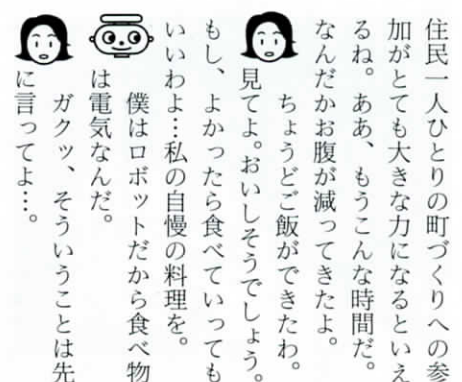 住民一人ひとりの町づくりへの参
加がとても大きな力になるといえ
るね。ああ、もうこんな時間だ。
なんだかお腹が減ってきたよ。
ちょうどご飯ができたわ。
見てよ。おいしそうでしょう。
もし、よかったら食べていっても
いいわよ…私の自慢の料理を。
僕はロボットだから食べ物
は電気なんだ。
ガクッ、そういうことは先
に言ってよ…。